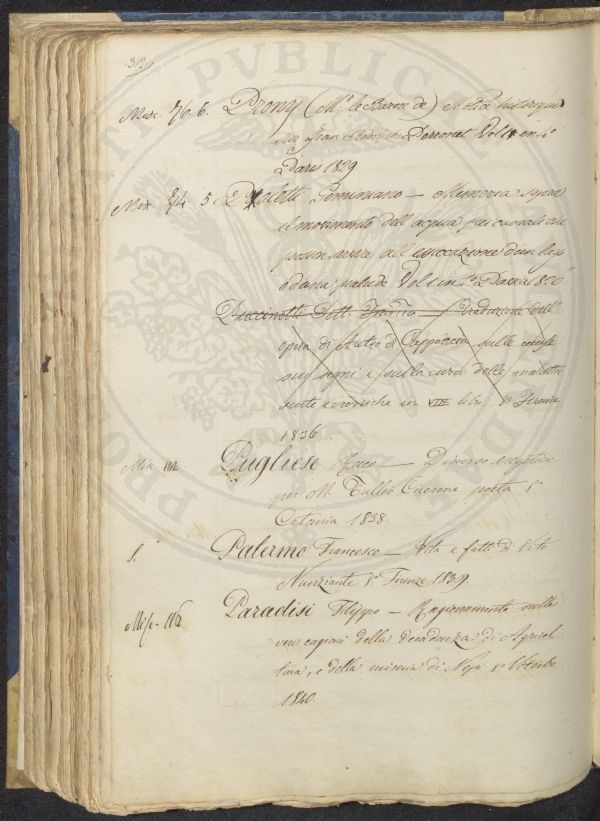 312.
Misc. 76. 6. Prony (Mr. le Baron de) Notice historique
sur Jean Rodolphe Perronet Vol. 1 en 4°
Paris 1829
Poletti Geminiano — Memoria sopra
il movimento dell'acqua pei canali
all'essicazione d'un lago
o d'una palude Vol. 1 in 4°
Puccinotti Dott. Franco — Traduzione dell'
opera di Areteo di Cappadocia sulle cause
sui segni e sulla cura delle malattie
acute e croniche in VIII libri 8° Firenze
1836
Pugliese Rocco — Discorso
per M. Tullio Cicerone poeta 8°
Catania 1838.
Palermo Francesco — Vita e fatti di Vito
Nunziante 8° Firenze 1839.
Misc. 116 Paradisi Filippo — Ragionamento sulle
vere cagioni della decadenza di Agricol
tura, e della miseria di 8° Viterbo
1840.
PVBLICA